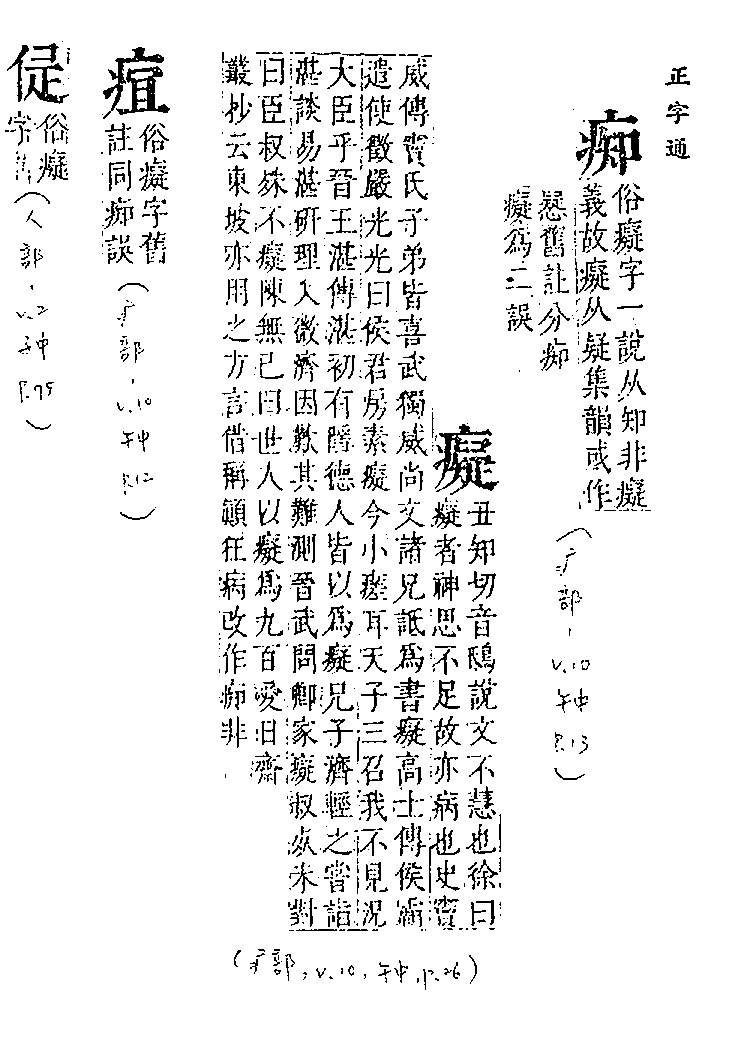 正字通
痴
俗癡字一說从知非癡
義故癡从疑集韻或作
憃舊註分痴
癡為二誤
(疒部,v.10
P.13)
癡
丑知切音鴟說文不慧也徐曰
癡者神思不足故亦病也史竇
威傳竇氏子弟皆喜武獨威尚文諸兄詆為書癡高士傳侯霸
遣使徵嚴光光曰侯君房素癡今小瘥耳天子三召我不見況
大臣乎晉王湛傳湛初有隱德人皆以為癡兄子濟輕之嘗詣
湛談易湛研理入微濟因歎其難測晉武問卿家癡叔死未對
曰臣叔殊不癡陳無已曰世人以癡為九百愛日齋
叢抄云東坡亦用之方言借稱顛狂病改作痴非
(疒部,v.10, P.26)
疽
俗癡字舊
註同痴誤
(疒部,v.10
P.12)
俗癡
字
(人部,v.2
P.75)